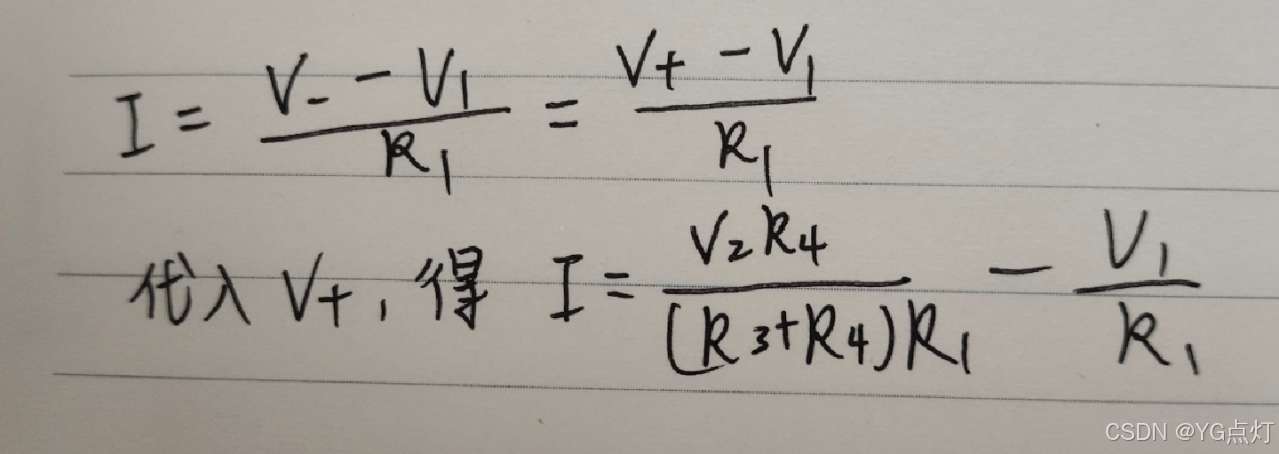 I = \frac{V_- - V_1}{R_1} = \frac{V_+ - V_1}{R_1}
代入 V_+, 得 I = \frac{V_2 R_4}{(R_3+R_4)R_1} - \frac{V_1}{R_1}
CSDN @YG点灯